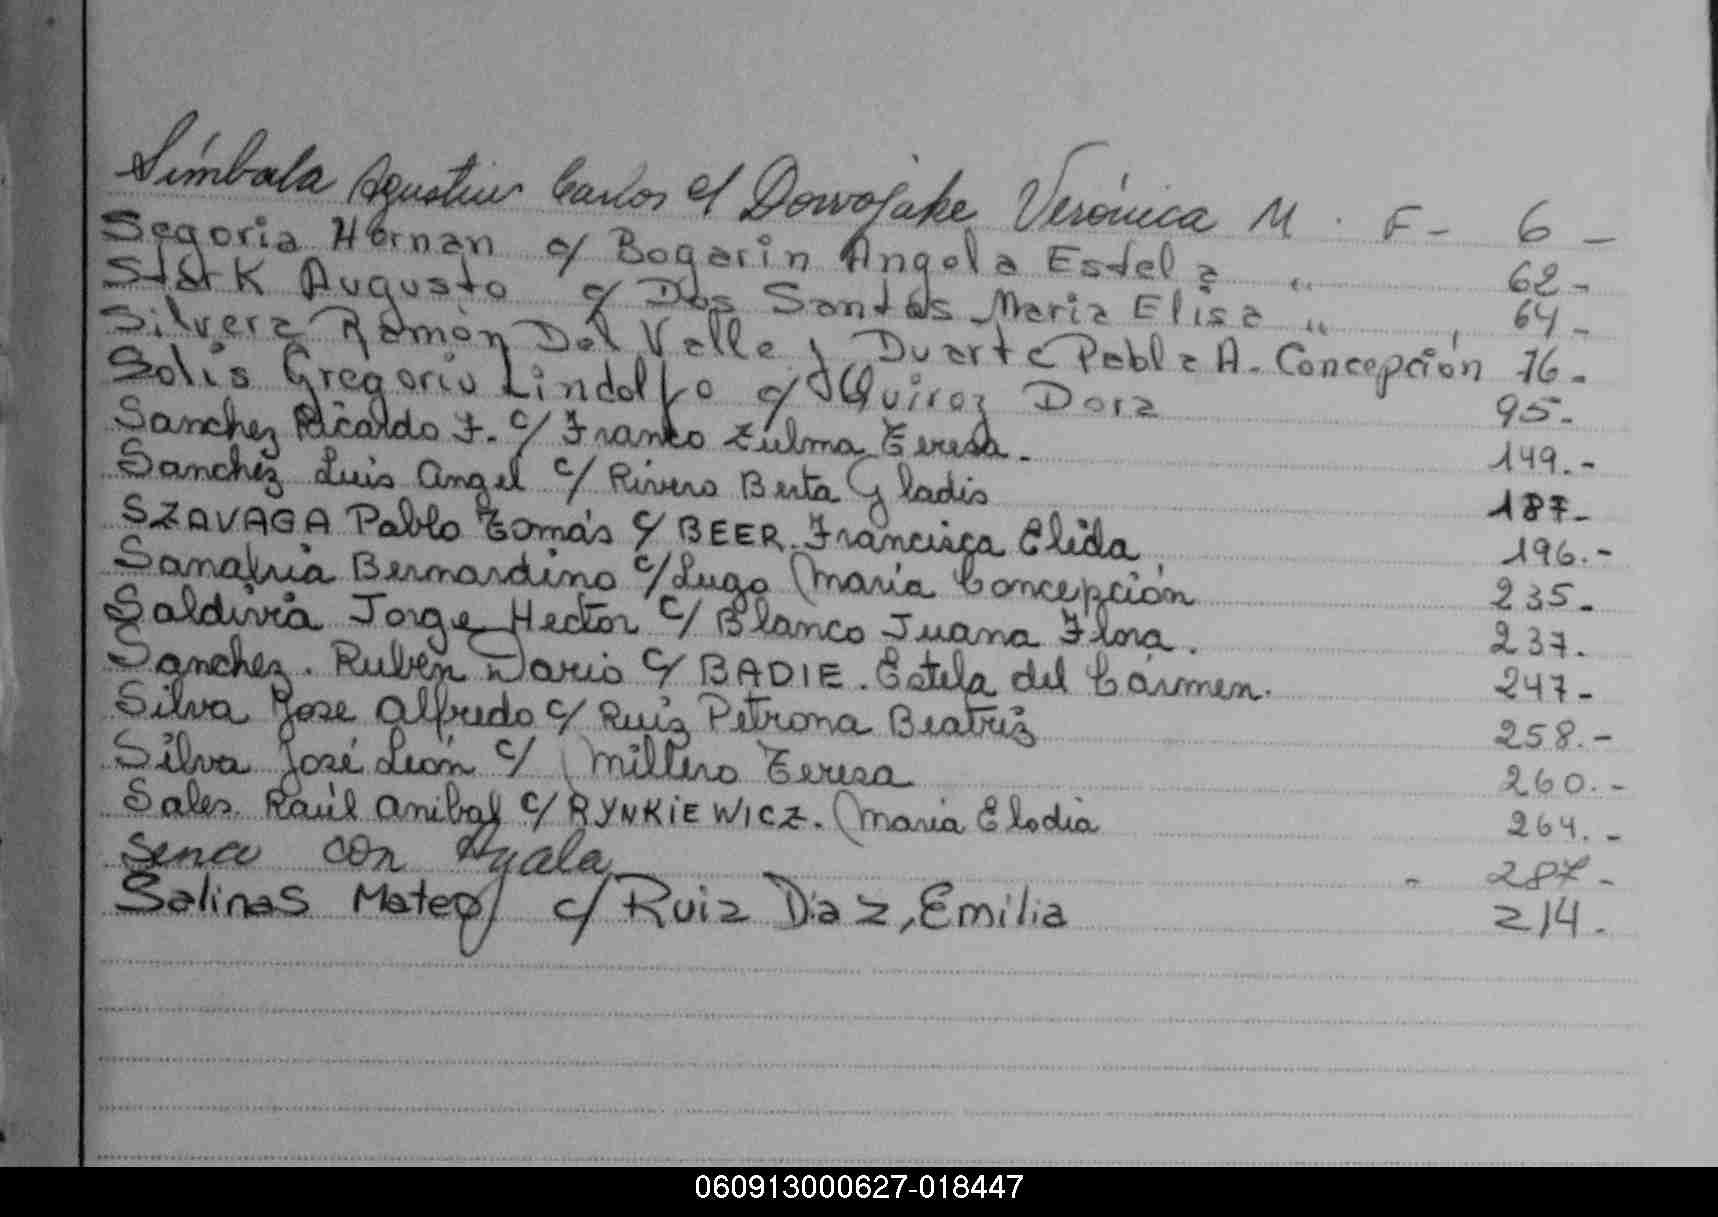 Símbala Agustin Carlos c/ Dowojake Verónica M. F- 6 -
Segoria Hernan c/ Bogarin Angela Estela " 62-
Stark Augusto c/ Dos Santos Maria Elisa " 64-
Silvera Ramón Del Valle y Duarte Pabla A. Concepción 76-
Solis Gregorio Lindolfo c/ Quiroz Dora 95-
Sanchez Ricardo F. c/ Franco Zulma Teresa. 149.-
Sanchez Luis Angel c/ Rivero Berta Gladis 187-
SZAVAGA Pablo Tomás c/ BEER. Francisca Elida 196.-
Sanabria Bernardino c/ Lugo Maria Concepción 235-
Saldivia Jorge Hector c/ Blanco Juana Flora. 237.
Sanchez. Rubén Dario c/ BADIE. Estela del Cármen. 247-
Silva Jose Alfredo c/ Ruiz Petrona Beatriz 258.-
Silva José León c/ Millero Teresa 260.-
Sales. Raúl Anibal c/ RYNKIEWICZ. Maria Elodia 264.-
con Ayala - 287-
Salinas Mateo c/ Ruiz Diaz, Emilia 214.
060913000627-018447